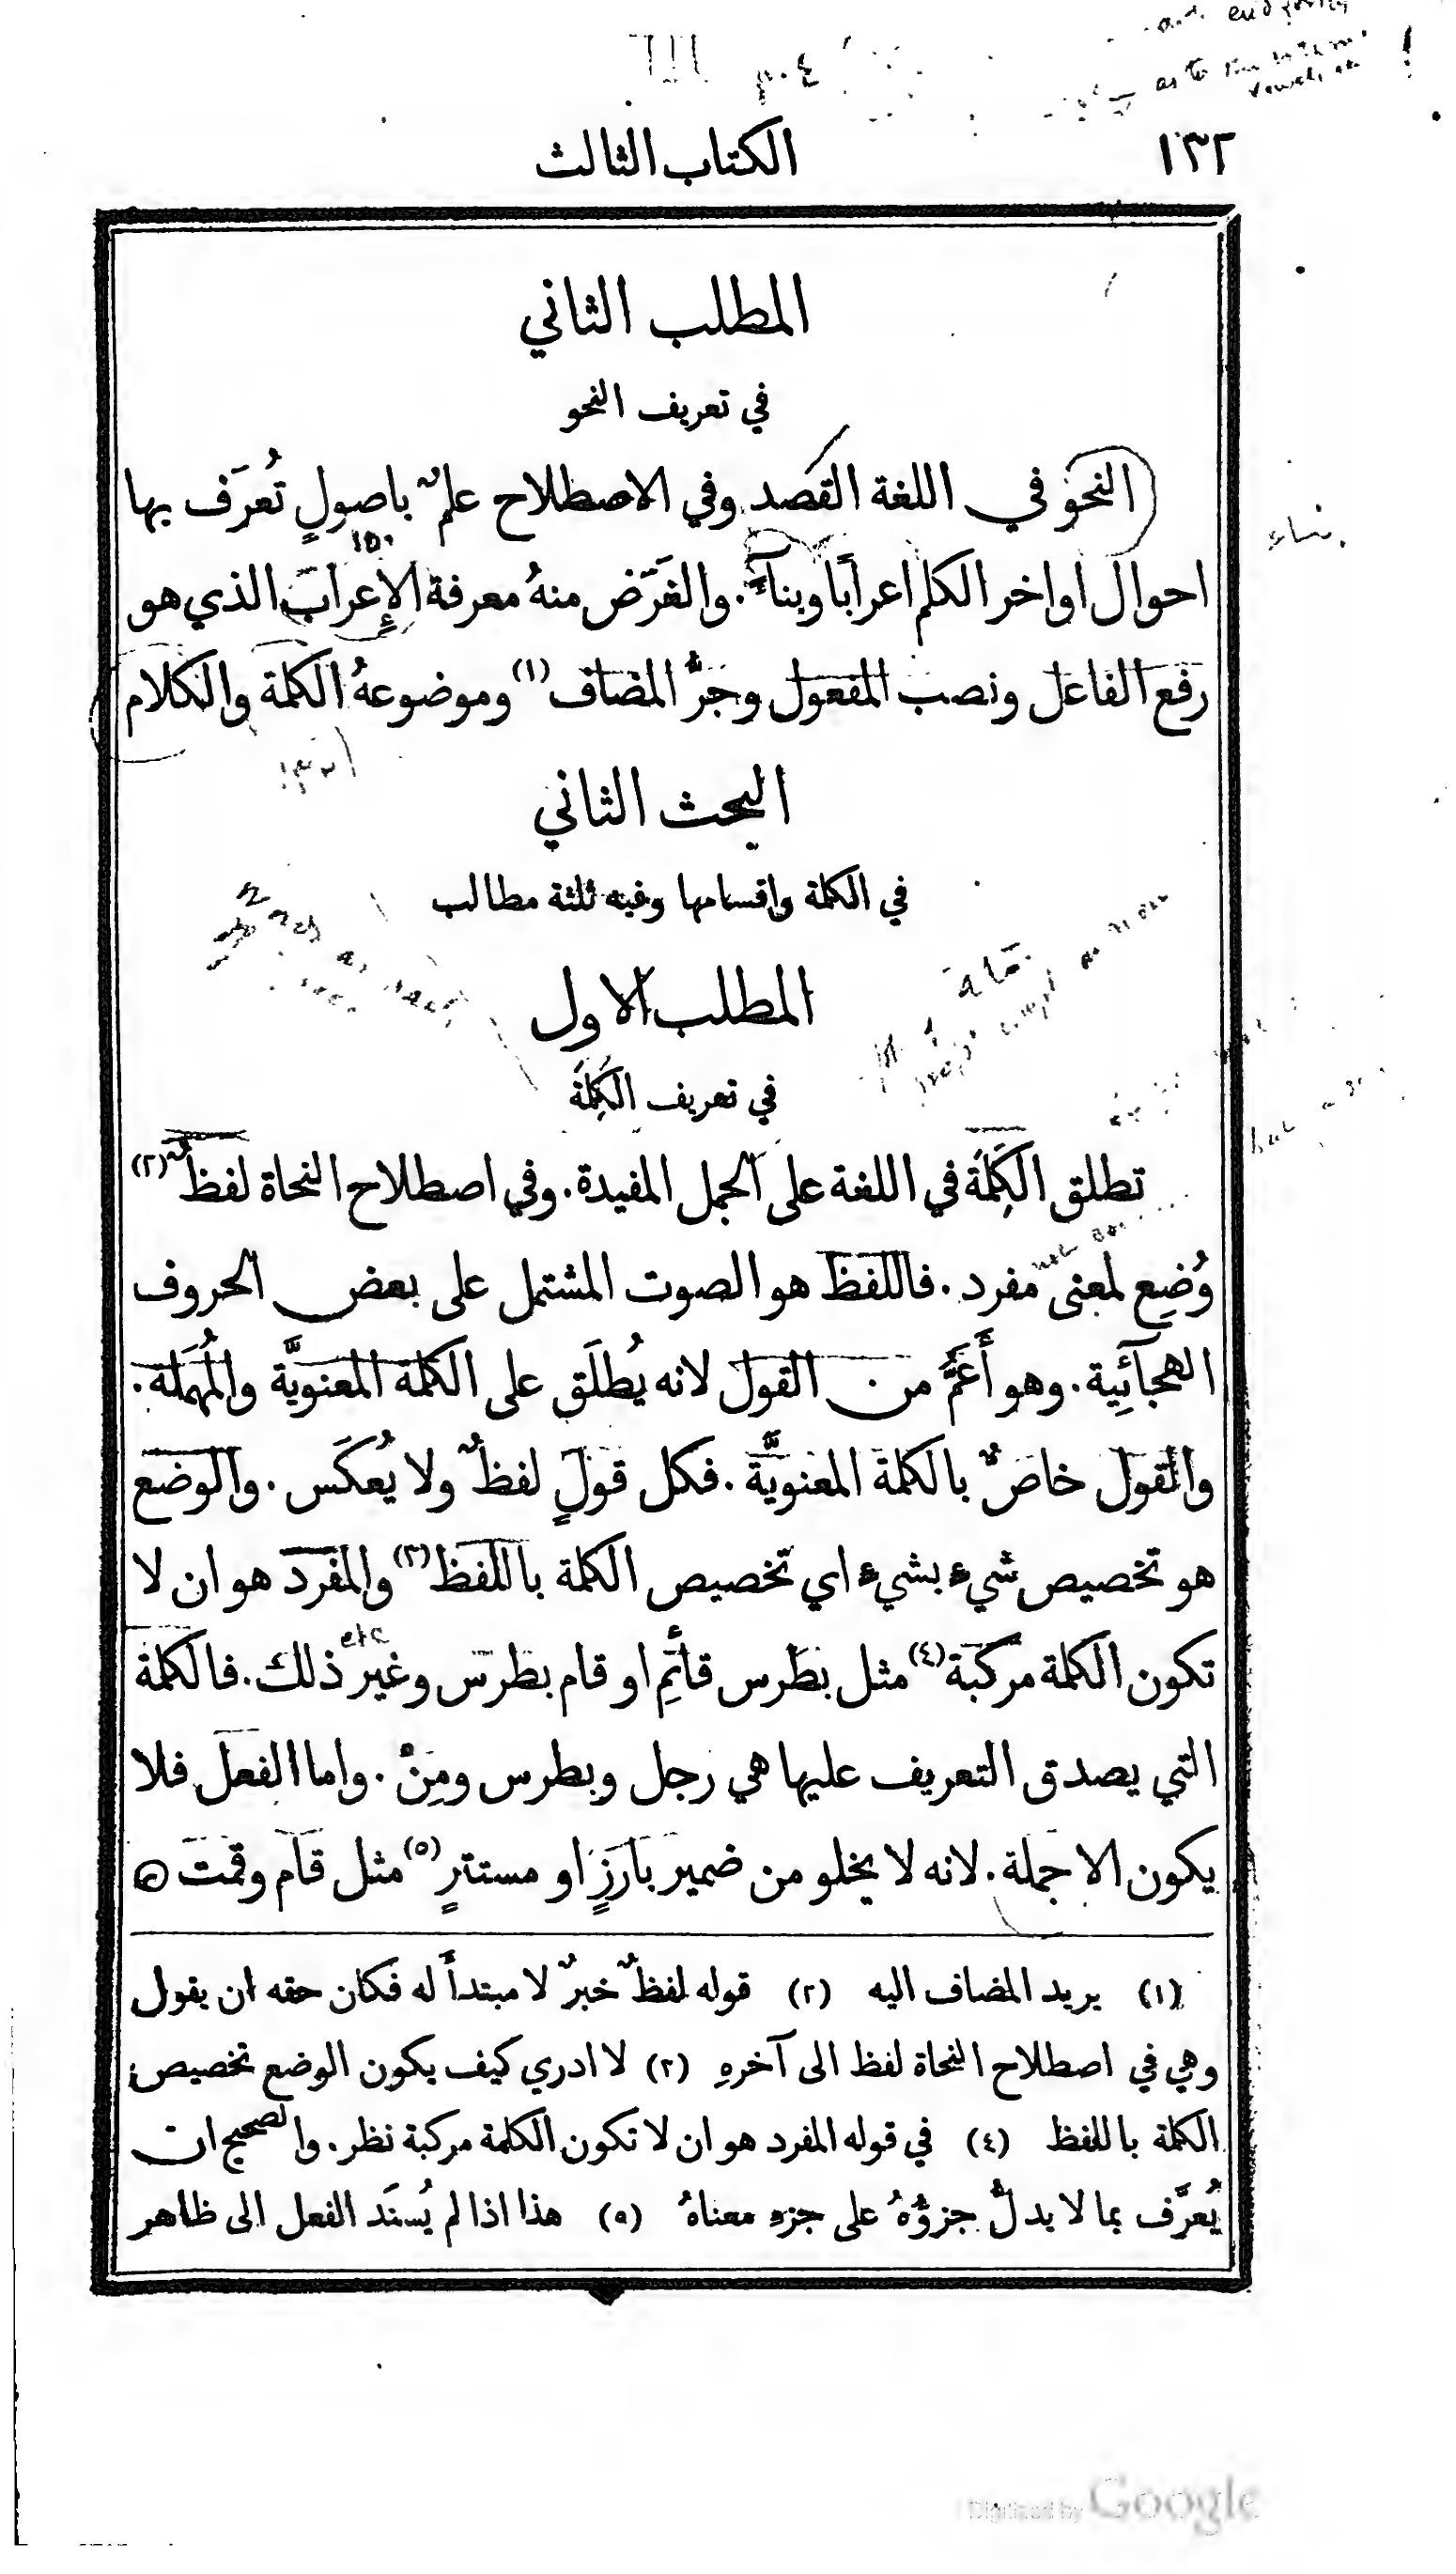 ١٣٢
الكتاب الثالث
المطلب الثاني
في تعريف النحو
النحو في اللغة القصد وفي الاصطلاح علمٌ باصولٍ تُعرَف بها
احوال اواخر الكلم اعرابًا وبناءً. والغَرَض منهُ معرفة الإِعراب الذي هو
رفع الفاعل ونصب المفعول وجرُّ المضاف (١) وموضوعهُ الكلمة والكلام
البحث الثاني
في الكلمة واقسامها وفيه ثلثة مطالب
المطلب الاول
في تعريف الكَلِمَة
تطلق الكَلِمَة في اللغة على الجمل المفيدة. وفي اصطلاح النحاة لفظٌ (٢)
وُضِع لمعنى مفرد. فاللفظ هو الصوت المشتمل على بعض الحروف
الهجآئِية. وهو أَعَمُّ من القول لانه يُطلَق على الكلمة المعنويَّة والمُهمَلة.
والقول خاصٌّ بالكلمة المعنويَّة. فكل قولٍ لفظٌ ولا يُعكَس. والوضع
هو تخصيص شيءٍ بشيءٍ اي تخصيص الكلمة باللفظ (٣) والمفرد هو ان لا
تكون الكلمة مركبة (٤) مثل بطرس قائِم او قام بطرس وغير ذلك. فالكلمة
etc
التي يصدق التعريف عليها هي رجل وبطرس ومِنْ. واما الفعل فلا
يكون الا جملة. لانه لا يخلو من ضمير بارزٍ او مستترٍ (٥) مثل قام وقمت
(١) يريد المضاف اليه (٢) قوله لفظٌ خبرٌ لا مبتدأَ له فكان حقه ان يقول
وهي في اصطلاح النحاة لفظ الى آخرهِ (٣) لا ادري كيف يكون الوضع تخصيص
الكلمة باللفظ (٤) في قوله المفرد هو ان لا تكون الكلمة مركبة نظر. والصحيح ان
يُعرَّف بما لا يدلُّ جزؤُهُ على جزءِ معناهُ (٥) هذا اذا لم يُسنَد الفعل الى ظاهر
بناء
١٥٠
Digitized by Google